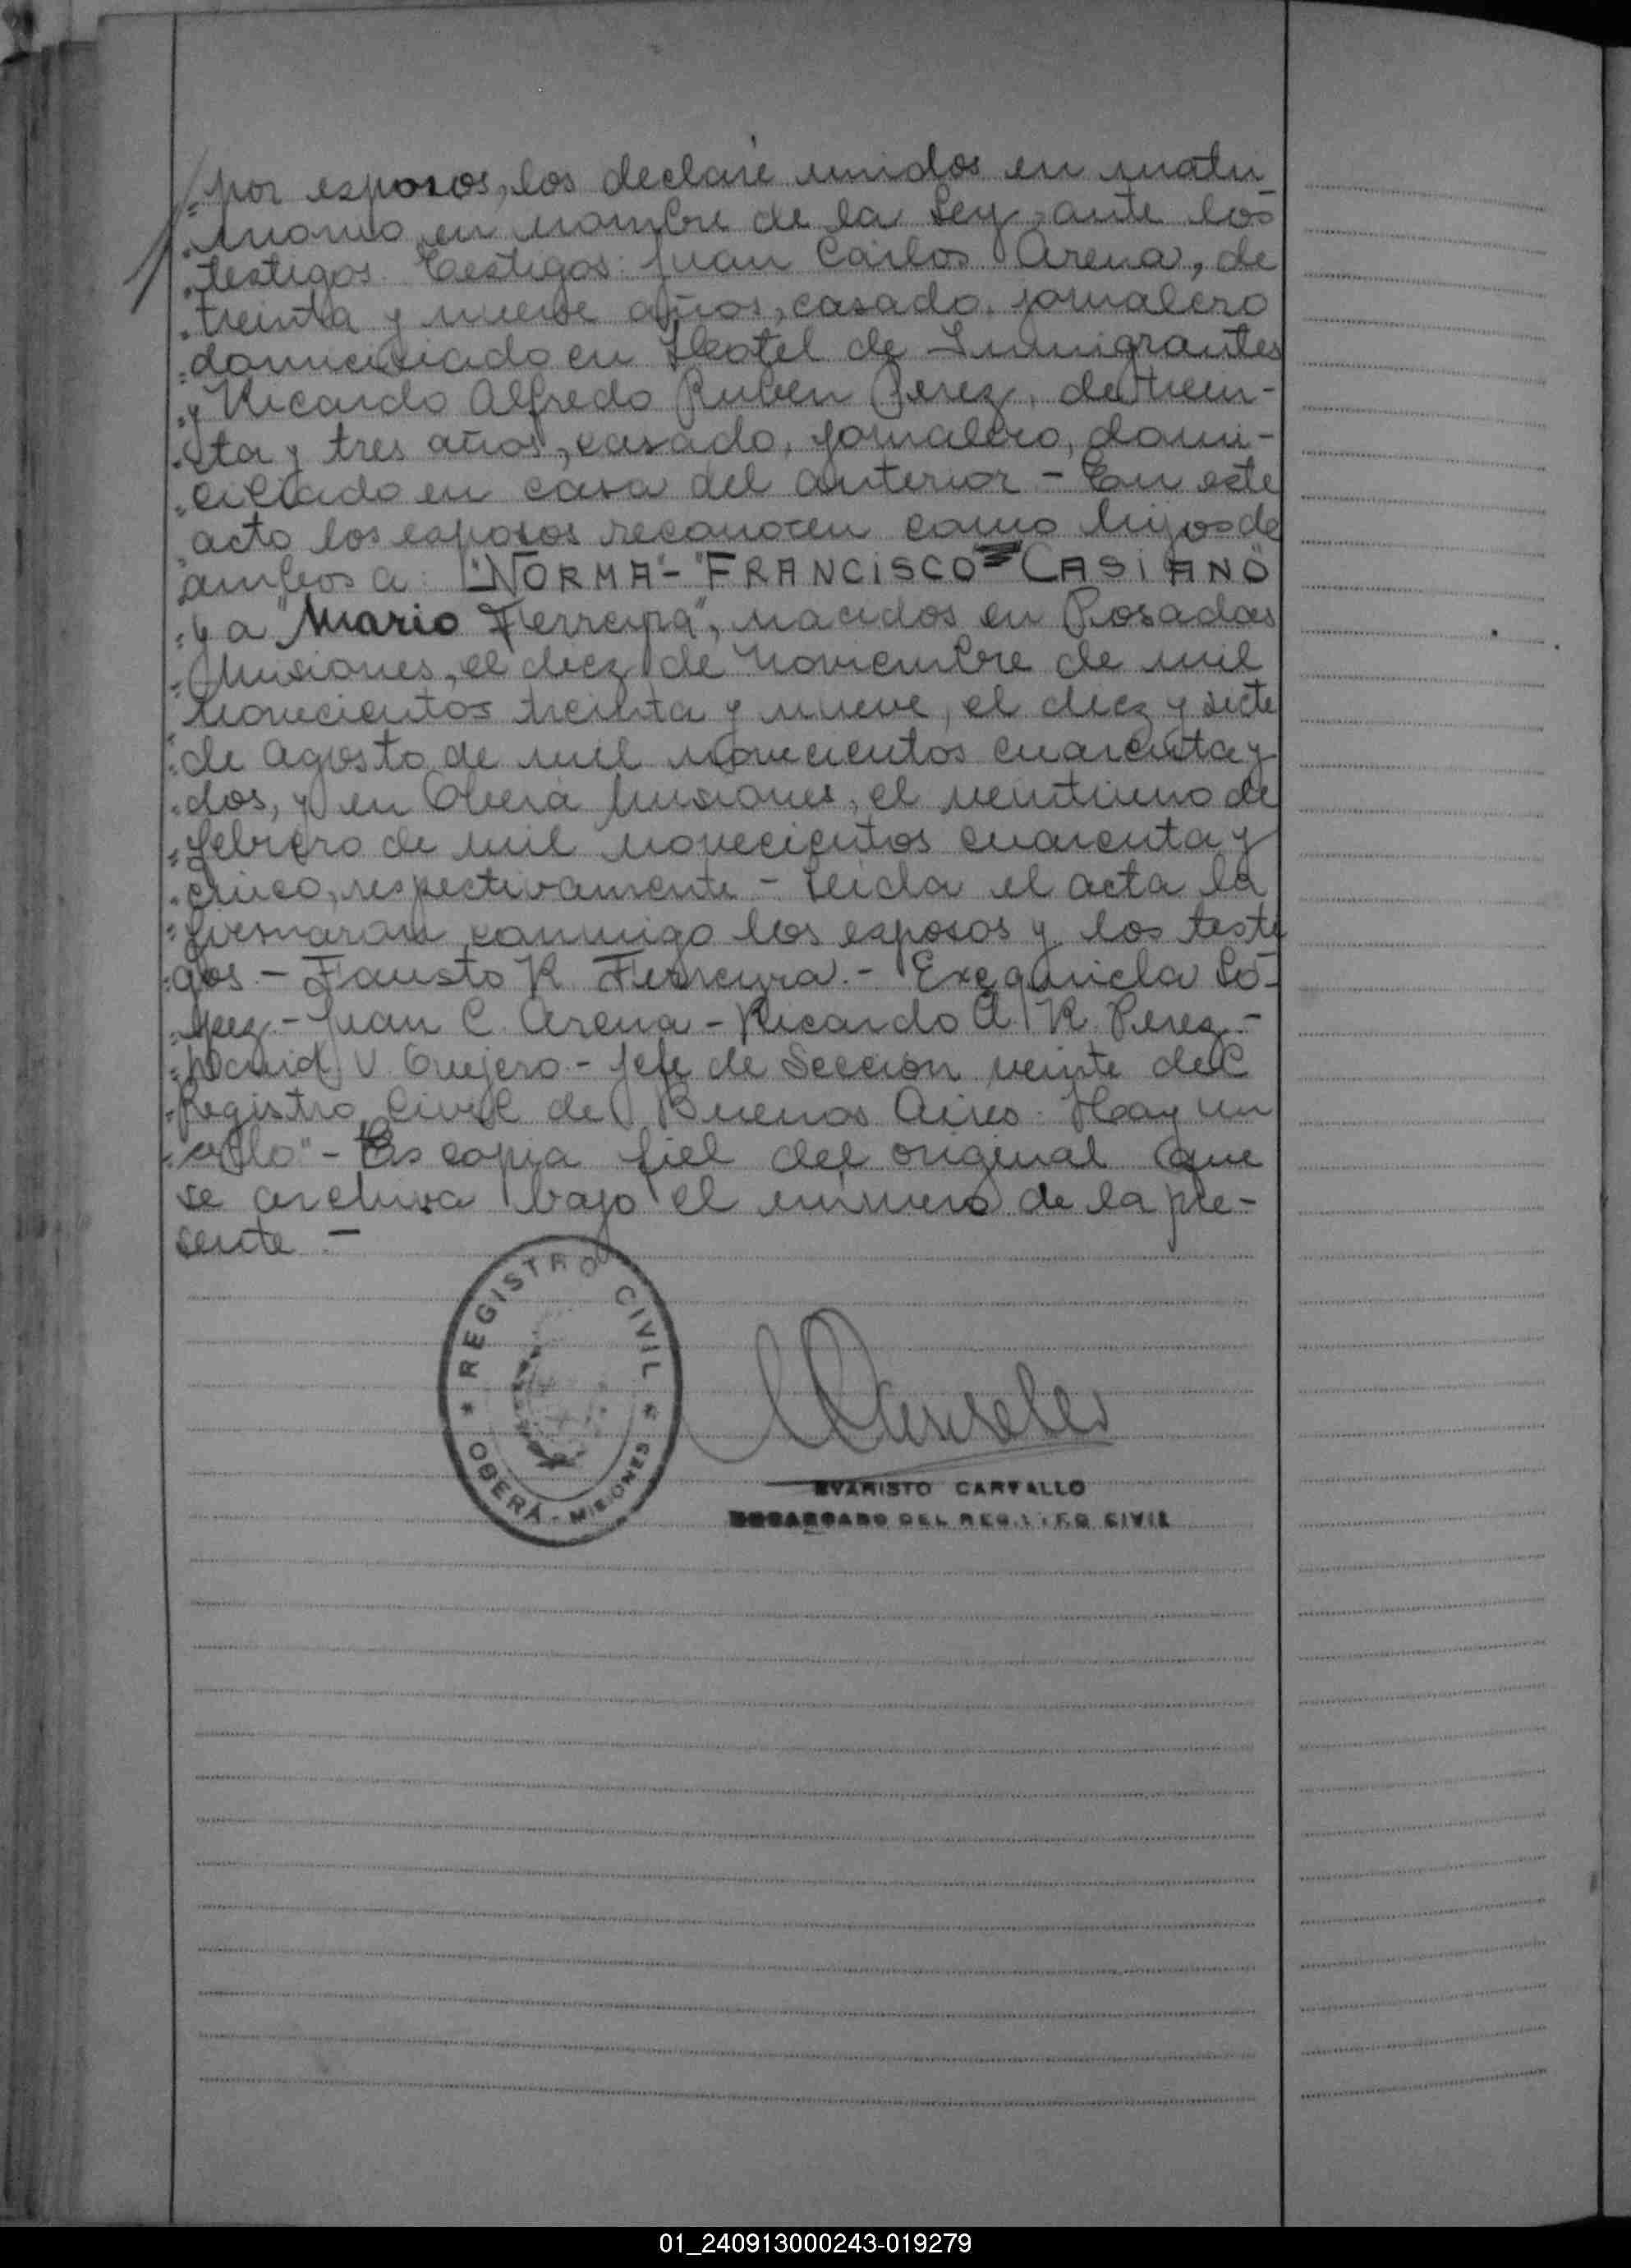 "por esposos, los declaré unidos en matri-
"monio en nombre de la Ley, ante los
"testigos. Testigos: Juan Carlos Arena, de
"treinta y nueve años, casado, jornalero
"domiciliado en Hotel de Inmigrantes
"y Ricardo Alfredo Ruben Perez, de trein-
"ta y tres años, casado, jornalero, domi-
"ciliado en casa del anterior - En este
"acto los esposos reconocen como hijos de
"ambos a: "NORMA" - "FRANCISCO CASIANO"
"y a "Mario Ferreyra", nacidos en Posadas
"Misiones, el diez de noviembre de mil
"novecientos treinta y nueve, el diez y siete
"de agosto de mil novecientos cuarenta y
"dos, y en Oberá Misiones, el veintiuno de
"febrero de mil novecientos cuarenta y
"cinco, respectivamente - Leida el acta la
"firmaron conmigo los esposos y los testi
"gos. - Fausto R Ferreyra. - Exequiela Ló-
"pez - Juan C. Arena - Ricardo A. R. Perez. -
"V - Jefe de Sección veinte del
"Registro Civil de Buenos Aires. Hay un
"sello" - Es copia fiel del original que
se archiva bajo el número de la pre-
sente. -
REGISTRO CIVIL
* OBERÁ - MISIONES *
EVARISTO CARVALLO
ENCARGADO DEL REGISTRO CIVIL
01_240913000243-019279